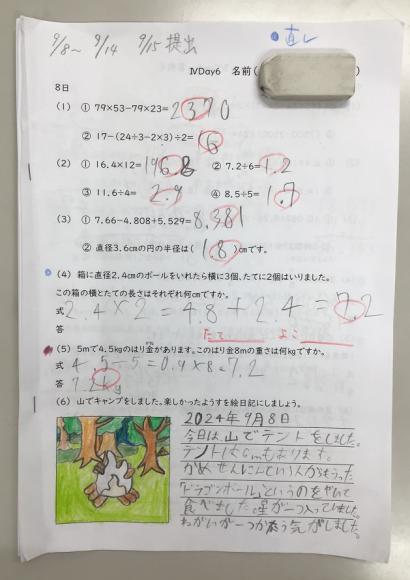 9/8〜 9/14 9/15 提出
直し
ⅣDay6 名前( )
8日
(1) ① 79×53-79×23=2370
② 17-(24÷3-2×3)÷2=16
(2) ① 16.4×12=196.8 ② 7.2÷6=1.2
③ 11.6÷4= 2.9 ④ 8.5÷5= 1.7
(3) ① 7.66-4.808+5.529=8.381
② 直径3.6cmの円の半径は( 1.8 )cmです。
(4) 箱に直径2.4cmのボールをいれたら横に3個、たてに2個はいりました。
この箱の横とたての長さはそれぞれ何cmですか。
式 2.4×2=4.8+2.4=7.2
答 たて よこ
(5) 5mで4.5kgのはり金があります。このはり金8mの重さは何kgですか。
式 4.5÷5=0.9×8=7.2
答 7.2kg
(6) 山でキャンプをしました。楽しかったようすを絵日記にしましょう。
2024年9月8日
今日は、山でテントをしました。
テントは6mもあります。
かめせんにんという人からもらった
「ドラゴンボール」というのをやいて
食べました。星が一つ入っていました。
ねがいが一つかなう気がしました。